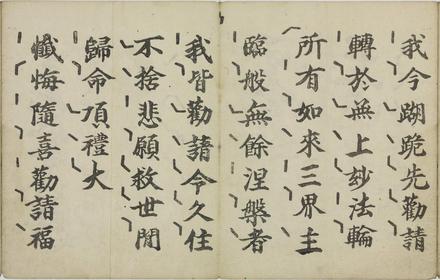 我今蹦跪先勸請
轉於無上妙法輪
所有如來三界主
臨般無餘涅槃者
我皆勸請令久住
不捨悲願救世間
歸命頂禮大
懺悔隨喜勸請福